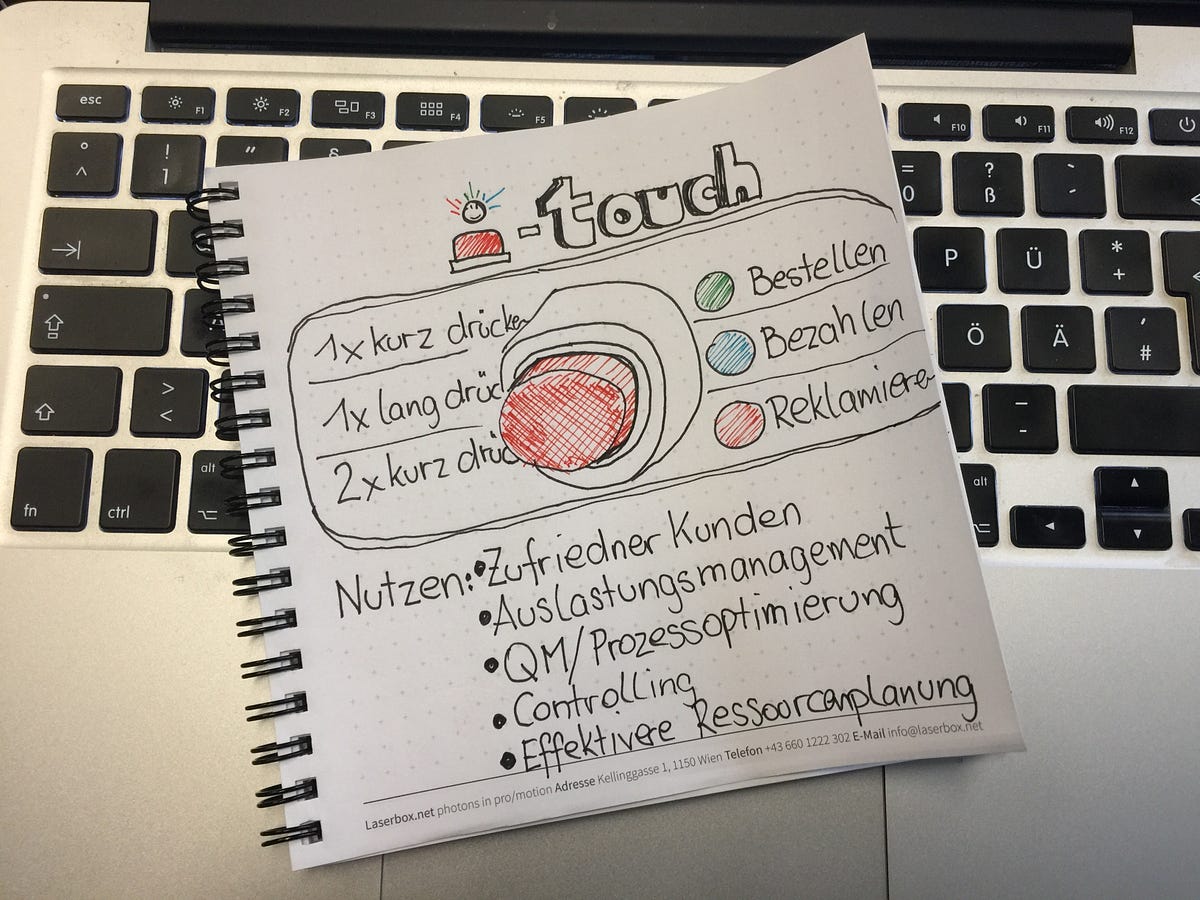 esc
F1
F2
F3
F4
F5
F10
F11
F12
°
^
!
1
"
§
=
0
?
ß
`
´
P
Ü
*
+
Ö
Ä
'
#
>
<
–
-
fn
ctrl
alt
alt
-touch
1x kurz drücken
1x lang drüc
2x kurz drüc
Bestellen
Bezahlen
Reklamieren
Nutzen: • Zufriedner Kunden
• Auslastungsmanagement
• QM/Prozessoptimierung
• Controlling
• Effektivere Ressourcenplanung
Laserbox.net photons in pro/motion Adresse Kellinggasse 1, 1150 Wien Telefon +43 660 1222 302 E-Mail info@laserbox.net